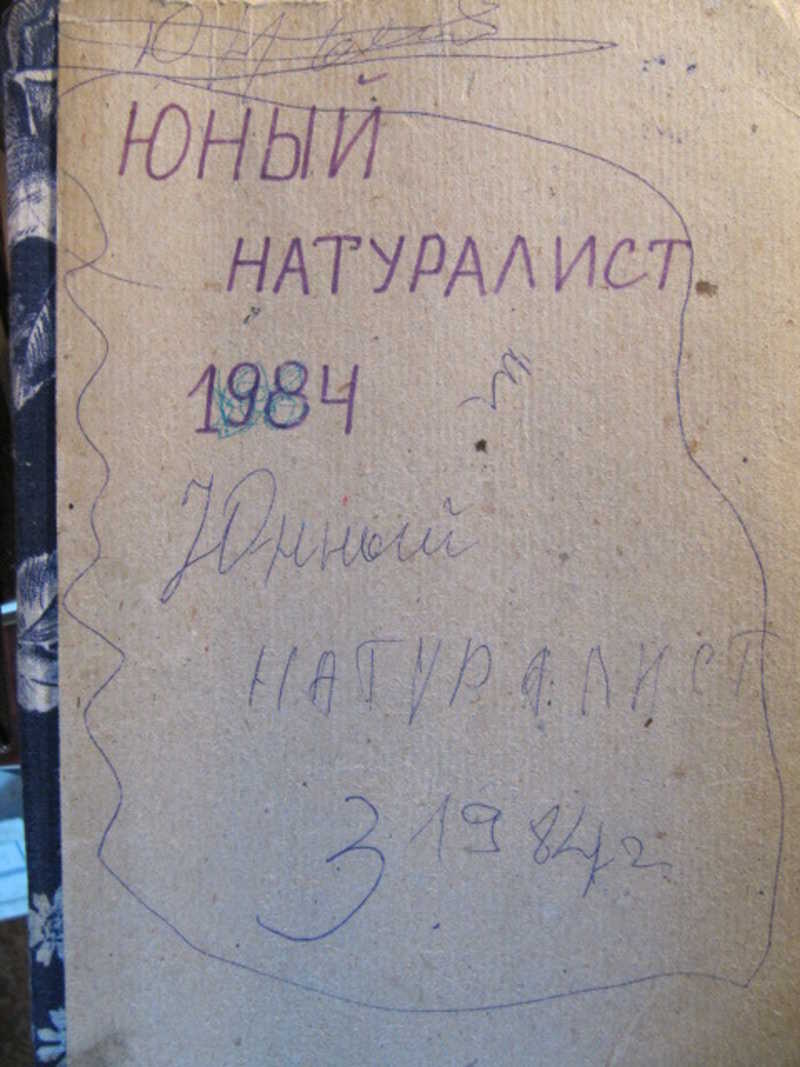 ЮНЫЙ
НАТУРАЛИСТ
1984
Юнный
НАТУРАЛИСТ
3 1984г